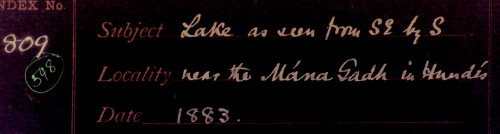 INDEX No.
Subject Lake as seen from SE by S
809
598
Locality near the Mána Gadh in Hundés
Date 1883.